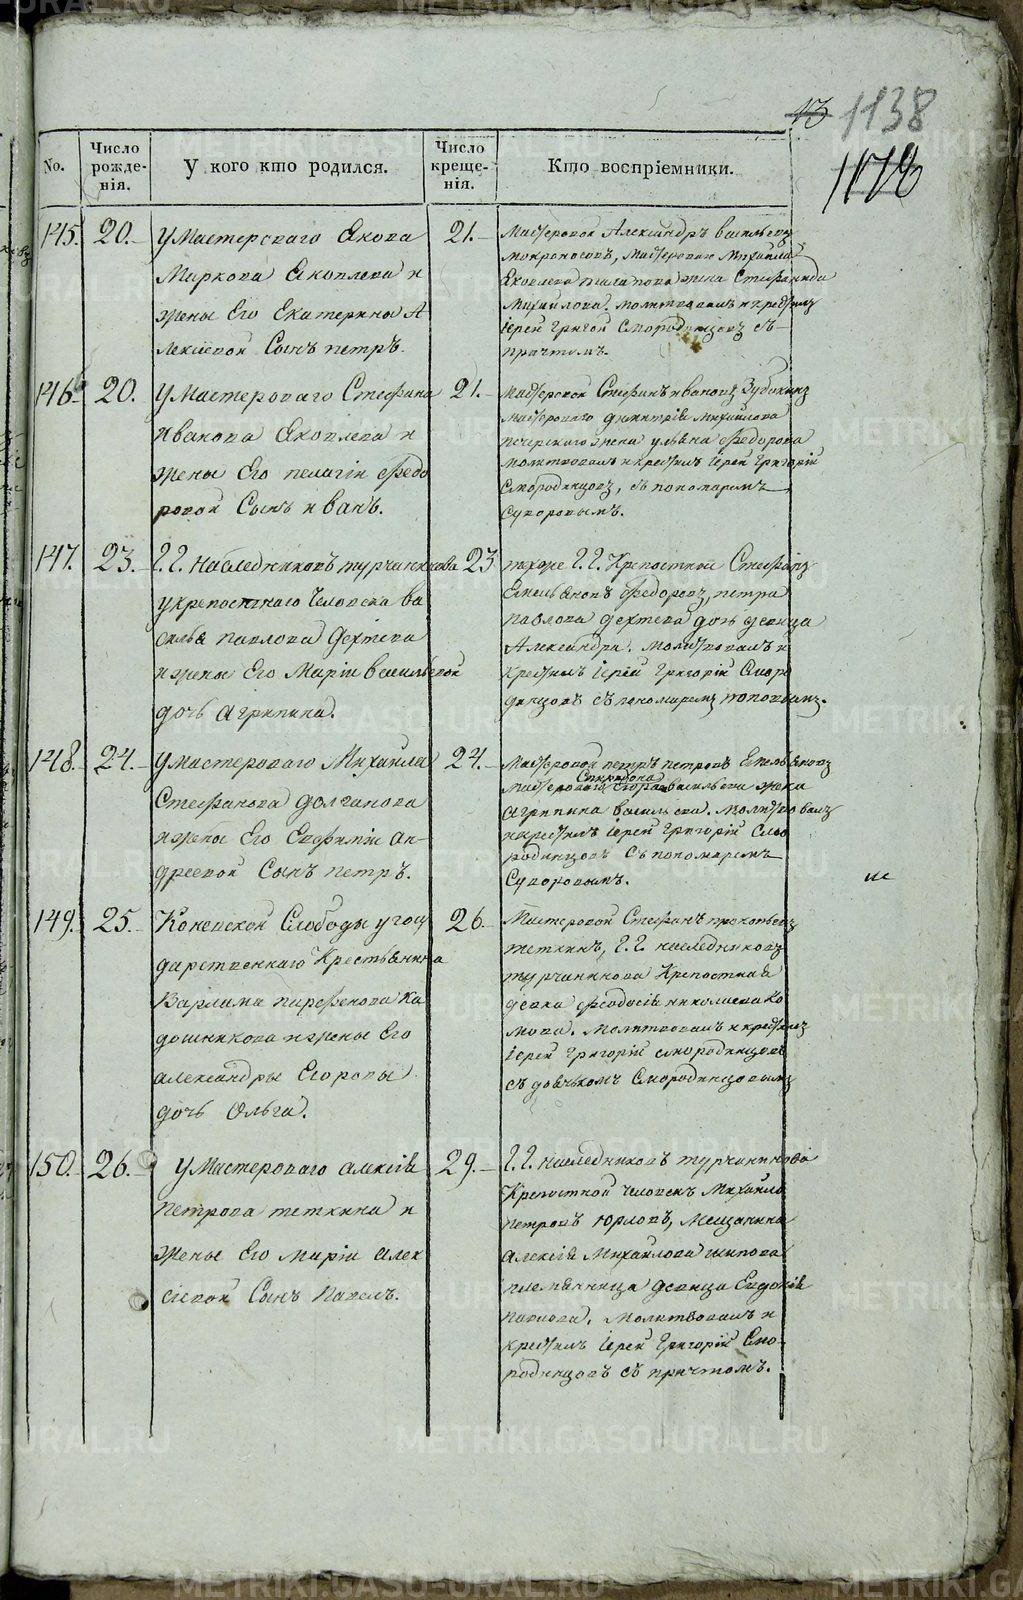 13 1138
1178
No.
Число рожденія.
У кого кто родился.
Число крещенія.
Кто воспріемники.
145. 20.
У Мастерскаго Якова
Маркова Яковлева и
жены Его Екатерины А
лексіевой Сынъ петръ.
21.
Мастеровой Александръ васильевъ
мокроносовъ, Мастероваго Михайла
Яковлева жена Стефанида
Михайлова. молитвовалъ и крестилъ
Іерей Григорій Смородинцовъ съ
причтомъ.
146. 20.
У Мастероваго Стефана
Иванова Яковлева и
жены Его пелагіи Ѳедо
ровой Сынъ иванъ.
21.
Мастерской Стефанъ ивановъ Зубакинъ
Мастероваго димитрія михайлова
печерскаго жена ульяна Ѳедорова
молитвовалъ и крестилъ Іерей Григорій
Смородинцовъ, съ пономаремъ
Суворовымъ.
147. 23.
Г.Г. наследниковъ турчанинова
у крепостнаго Человека ва
силья павлова Дехтева
и жены Его Маріи васильевой
дочь агрипина.
23
тхоже Г.Г. Крепостный Стефанъ
Емельяновъ Ѳедоровъ, петра
павлова дехтева дочь девица
Александра. Молитвовалъ и
крестилъ Іерей Григорій Смор
динцовъ съ пономаремъ поповымъ.
148. 24.
У мастероваго Михайла
Стефанова долганова
и жены Его Евфиміи ан-
дреевой Сынъ петръ.
24.
Мастеровой петръ петровъ Емельяновъ
Спиридона
мастероваго васильева жена
агрипина васильева. Молитвовалъ
и крестилъ Іерей Григорій Смо
родинцовъ съ пономаремъ
Суворовымъ.
149. 25.
Коневской Слободы у госу
дарственнаго Крестьянина
Варлама парфенова Ка
дошникова и жены Его
александры Егоровы
дочь Ольга.
26.
Мастеровой Стефанъ прокопьевъ
теткинъ, Г.Г. наследниковъ
турчанинова Крепостная
девка феодосія николаева Ко
мова. Молитвовалъ и крестилъ
Іерей Григорій смородинцовъ
съ дьячкомъ Смородинцовымъ
150. 26.
У Мастероваго алексія
петрова теткина и
жены Его маріи алек
сіевой Сынъ Павелъ.
29.
Г.Г. наследниковъ турчанинова
Крепостной человекъ Михайло
петровъ Юрловъ, Мещанина
алексія Михайлова шипова
племянница девица Евдокія
павлова. Молитвовалъ и
крестилъ Іерей Григорій Смо-
родинцовъ съ причтомъ.
METRIKI.GASO-URAL.RU